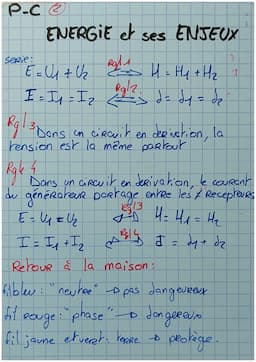 P-C ②
ENERGIE et ses ENJEUX
serie:
Rgl 1
E = U1 + U2 ⟺ H = H1 + H2
Rgl 2
I = I1 = I2 ⟺ d = d1 = d2
Rgl 3 Dans un circuit en derivation, la
tension est la même partout
Rgl 4
Dans un circuit en derivation, le courant
du générateur partage entre les ≠ Recepteurs
Rgl 3
E = U1 = U2 ⟺ H = H1 = H2
Rgl 4
I = I1 + I2 ⟺ d = d1 + d2
Retour à la maison:
fil bleu: "neutre" → pas dangereux
fil rouge: "phase" → dangereux
fil jaune et vert: terre → protège.